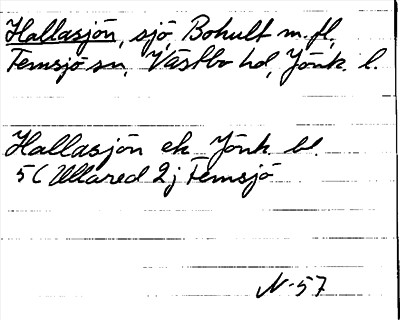 Hallasjön, sjö, Bohult m.fl,
Femsjö sn, Västbo hd, Jönk. l.
Hallasjön ek Jönk. bl.
5C Ullared 2j Femsjö
N-57